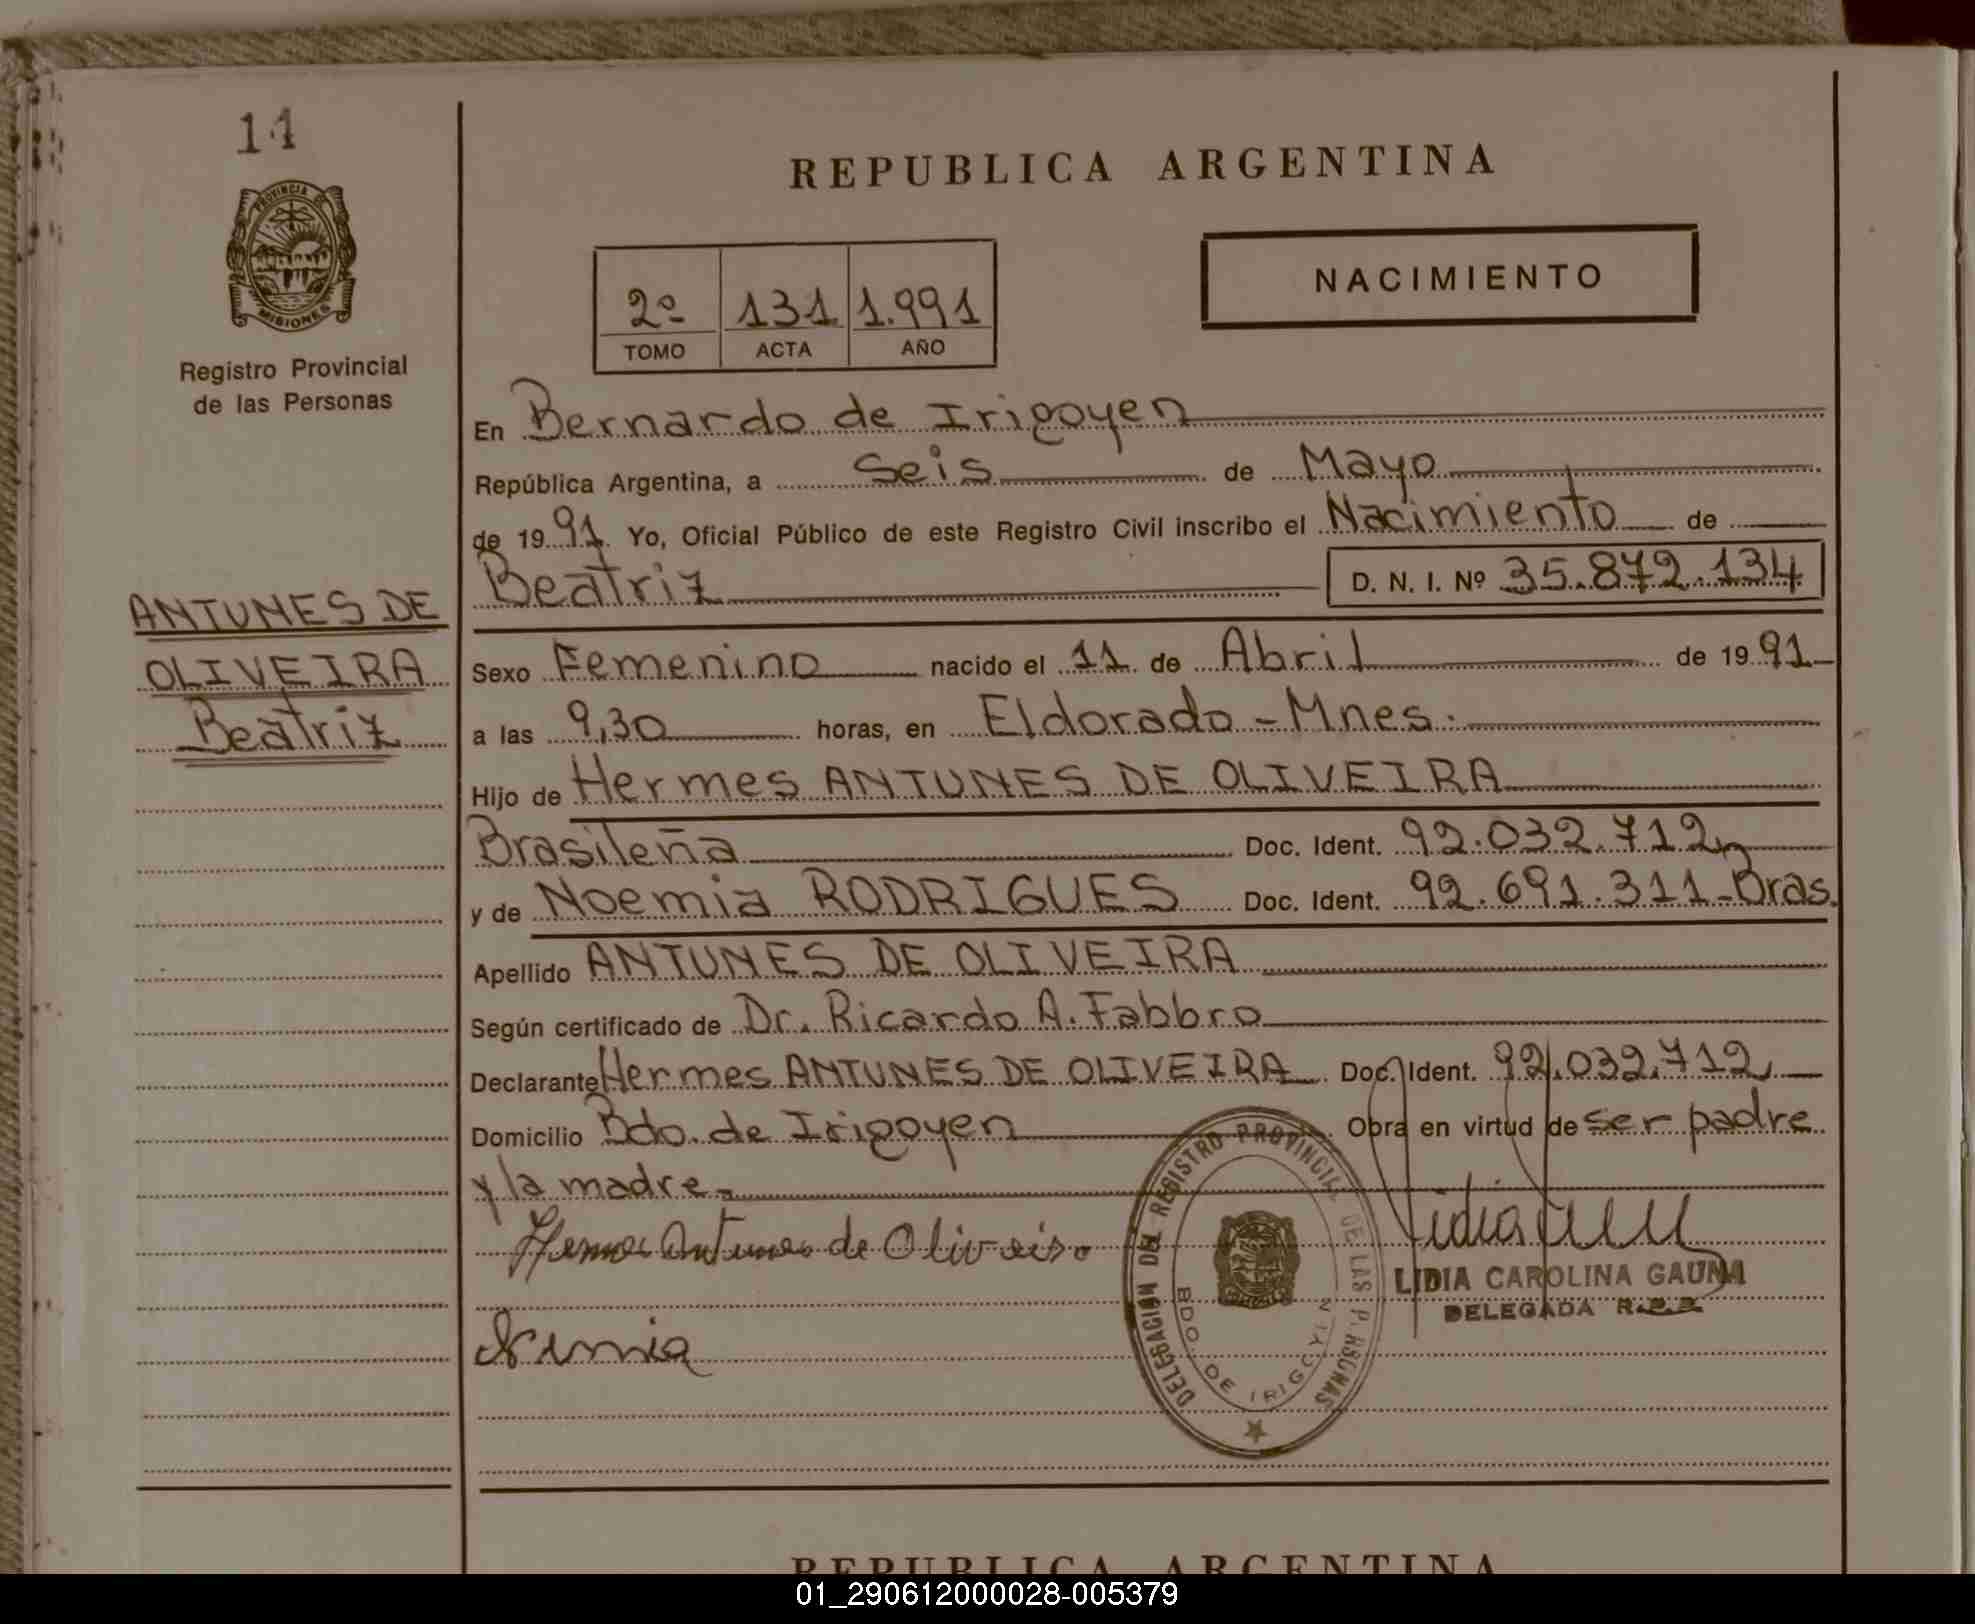 14
PROVINCIA DE
MISIONES
Registro Provincial
de las Personas
REPUBLICA ARGENTINA
NACIMIENTO
2º 131 1.991
TOMO ACTA AÑO
En Bernardo de Irigoyen
República Argentina, a Seis de Mayo
de 19 91. Yo, Oficial Público de este Registro Civil inscribo el Nacimiento de
Beatriz D. N. I. Nº 35.872.134
ANTUNES DE
OLIVEIRA
Beatriz
Sexo Femenino nacido el 11 de Abril de 19 91
a las 9,30 horas, en Eldorado - Mnes.
Hijo de Hermes ANTUNES DE OLIVEIRA
Brasileña Doc. Ident. 92.032.712
y de Noemia RODRIGUES Doc. Ident. 92.691.311 - Bras.
Apellido ANTUNES DE OLIVEIRA
Según certificado de Dr. Ricardo A. Fabbro
Declarante Hermes ANTUNES DE OLIVEIRA Doc. Ident. 92.032.712
Domicilio Bdo. de Irigoyen Obra en virtud de ser padre
y la madre.-
Hermes Antunes de Oliveira
DELEGACION DEL REGISTRO PROVINCIAL DE LAS PERSONAS
BDO. DE IRIGOYEN
LIDIA CAROLINA GAUNA
DELEGADA R.P.P.
REPUBLICA ARGENTINA
01_290612000028-005379